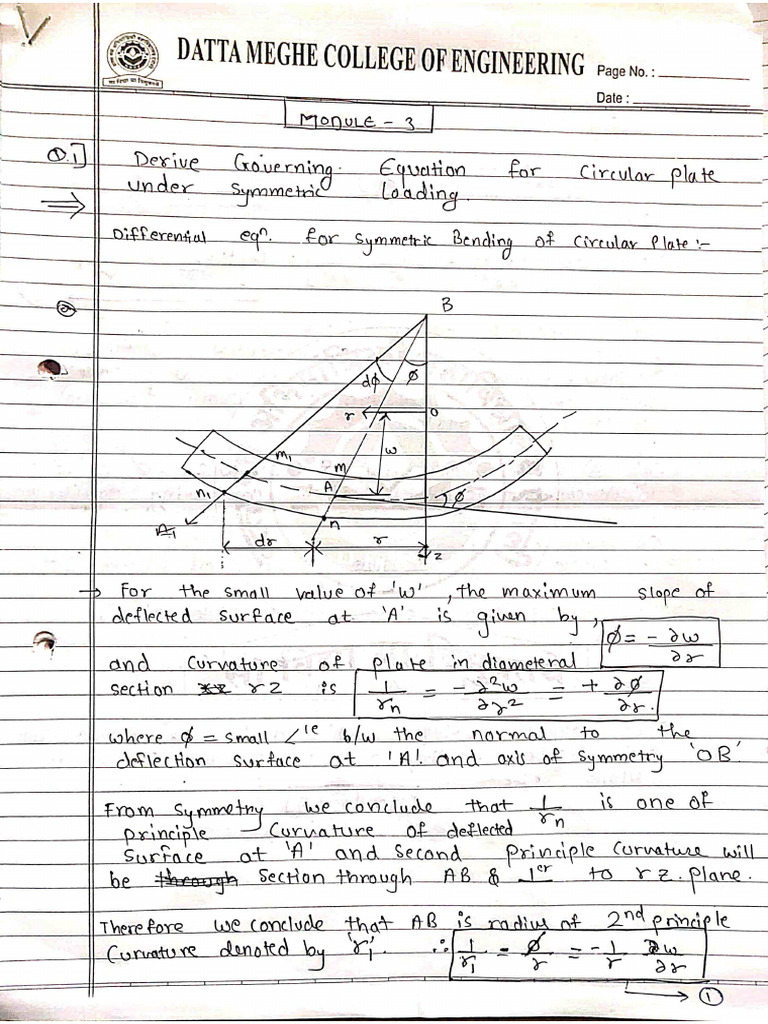 DATTA MEGHE COLLEGE OF ENGINEERING
Page No. :
Date :
MODULE - 3
Q.1] Derive Governing Equation for Circular plate
under Symmetric Loading.
Differential eqn. for Symmetric Bending of Circular Plate :-
B
dϕ ϕ
r o
w
m1 m
A
n1 ϕ
n
A1
dr r
z
→ For the small value of 'w', the maximum slope of
deflected surface at 'A' is given by,
ϕ = - ∂w/∂r
and curvature of plate in diameteral
section rz is 1/rn = - ∂²w/∂r² = + ∂ϕ/∂r.
where ϕ = small ∠le b/w the normal to the
deflection surface at 'A' and axis of symmetry 'OB'
From symmetry we conclude that 1/rn is one of
principle curvature of deflected
surface at 'A' and second principle curvature will
be through section through AB & ⊥er to rz plane.
Therefore we conclude that AB is radius of 2nd principle
curvature denoted by 'r1'. ∴ 1/r1 = ϕ/r = - 1/r ∂w/∂r
→ ①